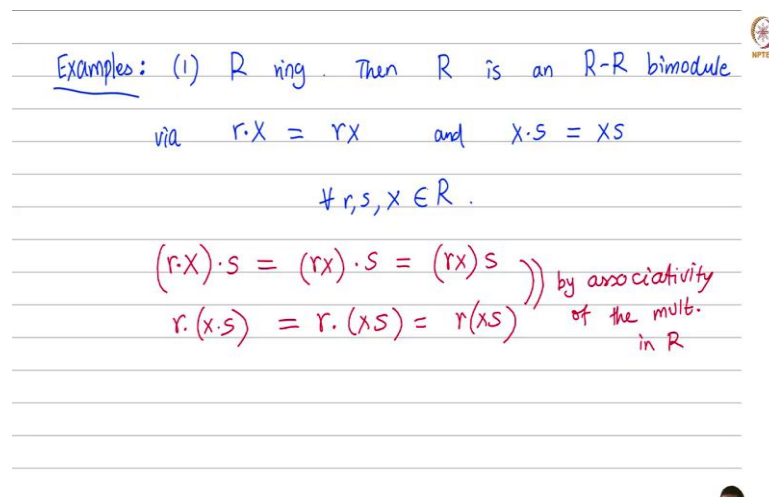 Examples: (1) R ring. Then R is an R-R bimodule
via r·x = rx and x·s = xs
∀ r,s,x ∈ R.
(r·x)·s = (rx)·s = (rx)s
r·(x·s) = r·(xs) = r(xs)
)) by associativity
of the mult.
in R
NPTE